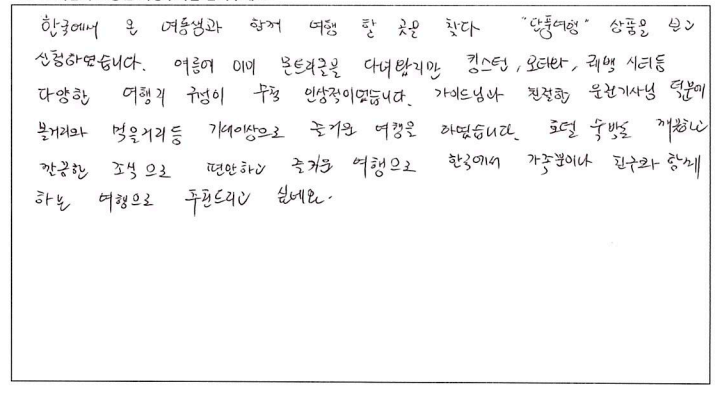 한국에서 온 여동생과 함께 여행 할 곳을 찾다 "단풍여행" 상품을 보고
신청하였습니다. 여름에 이미 몬트리올을 다녀왔지만 킹스턴, 오타와, 퀘벡 시티등
다양한 여행지 구성이 무척 인상적이었습니다. 가이드님과 친절한 운전기사님 덕분에
볼거리와 먹을거리등 기대이상으로 즐거운 여행을 하였습니다. 호텔 숙박도 깨끗하고
깔끔한 조식으로 편안하고 즐거운 여행으로 한국에서 가족분이나 친구와 함께
하는 여행으로 추천드리고 싶네요.